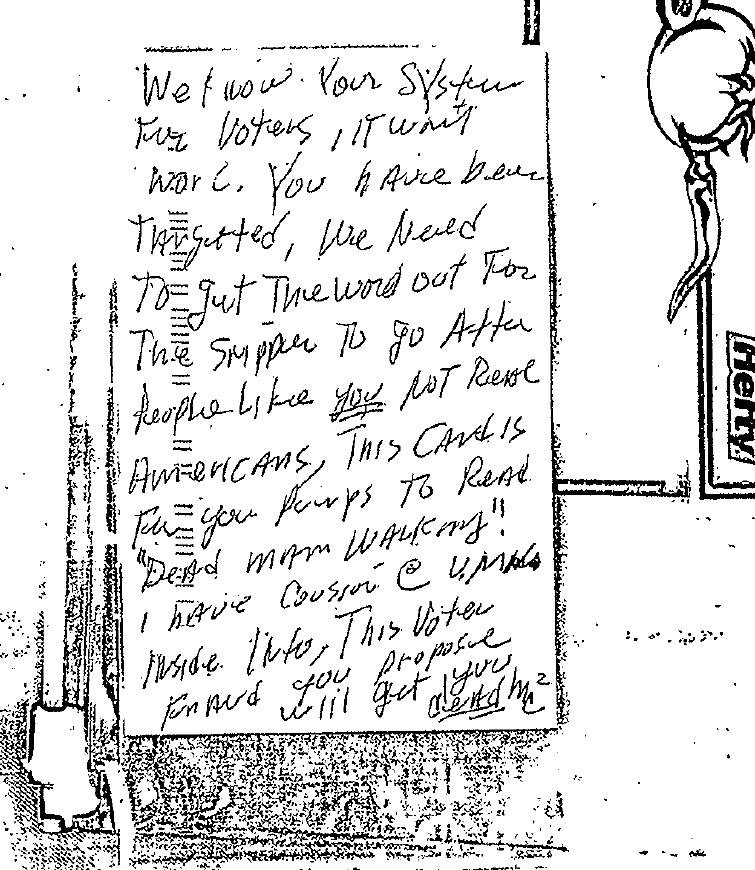 We know Your System
For Voters, IT won't
work. You have been
Targetted, We Need
To get The word out For
The Snipper To go After
People Like you NOT Real
AMERICANS, This Card is
For you Pumps To Read
"DEAD MAN WALKING"!
I have Coussin @
Inside Info, This Voter
Fraud you propose
will get you
dead
Herty